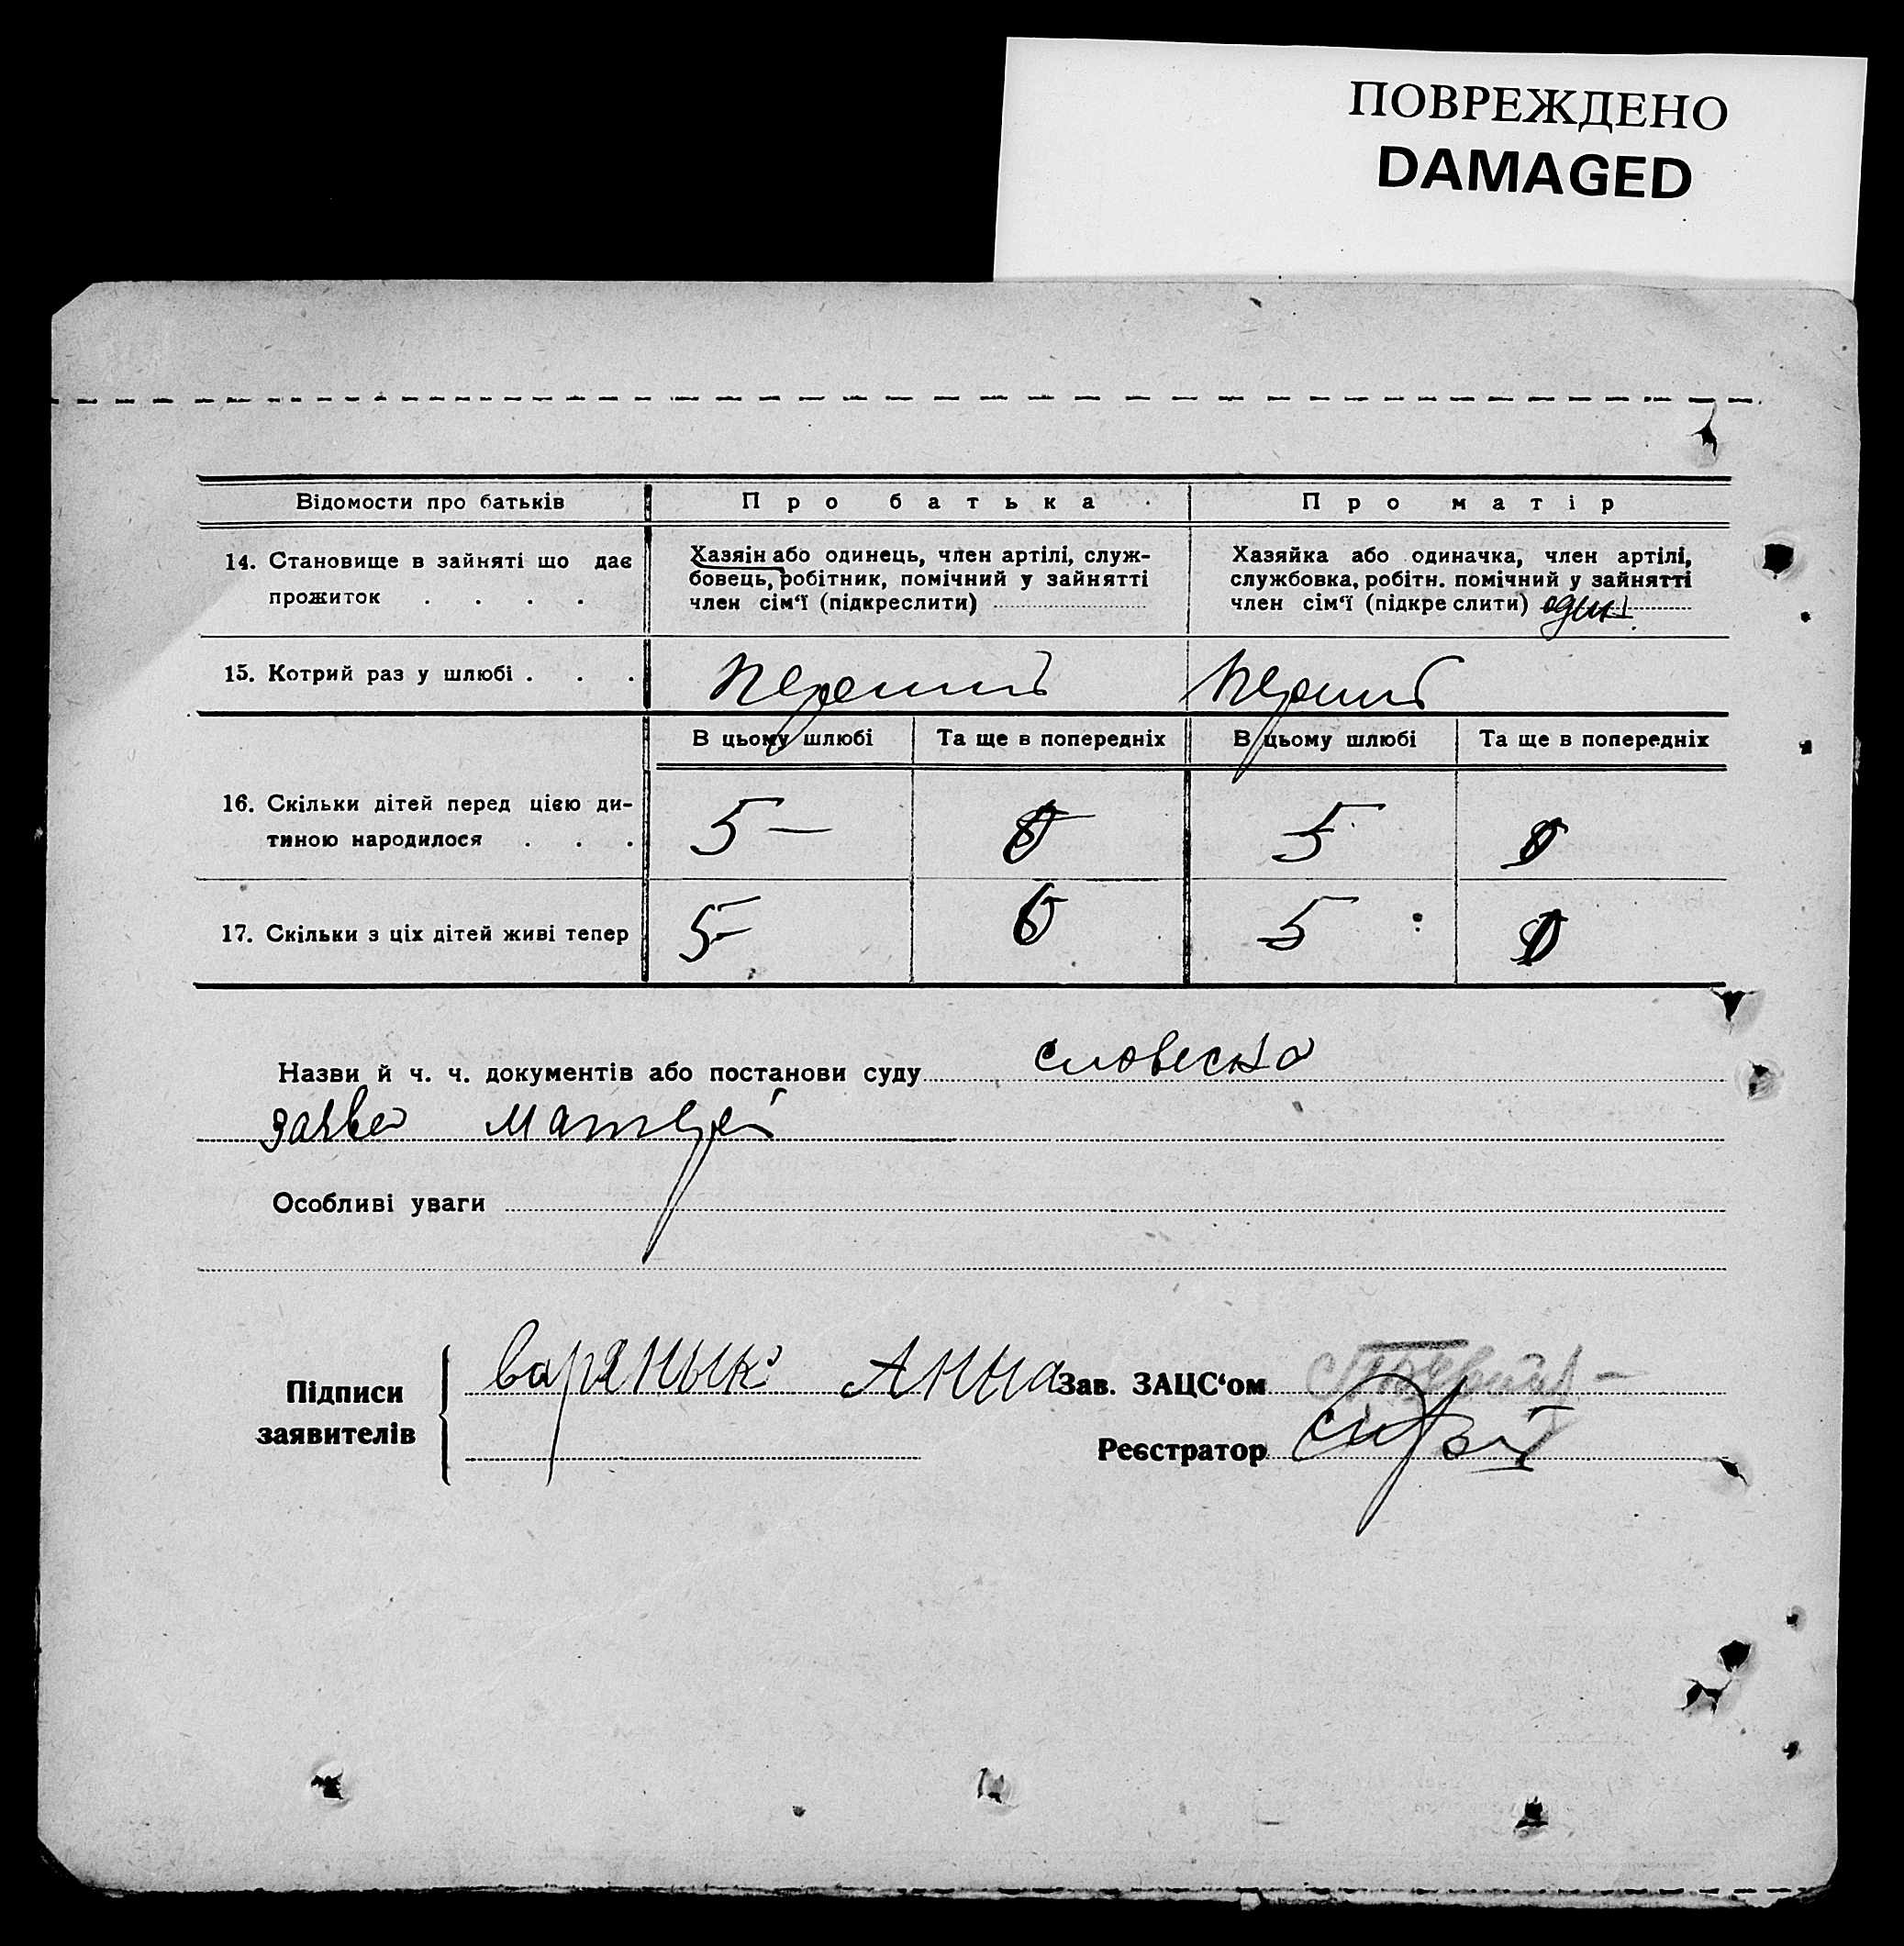 ПОВРЕЖДЕНО
DAMAGED
Відомости про батьків
Про батька
Про матір
14. Становище в зайняті що дає
прожиток . . . .
Хазяін або одинець, член артілі, служ-
бовець, робітник, помічний у зайнятті
член сім‘ї (підкреслити)
Хазяйка або одиначка, член артілі,
службовка, робітн. помічний у зайнятті
член сім‘ї (підкре слити)
15. Котрий раз у шлюбі . . .
перший
перший
В цьому шлюбі
Та ще в попередніх
В цьому шлюбі
Та ще в попередніх
16. Скільки дітей перед цією ди-
тиною народилося . . .
5 —
5
17. Скільки з ціх дітей живі тепер
5
5
Назви й ч. ч. документів або постанови суду словесна
заява матері
Особливі уваги
Підписи
заявителів
Анна
Зав. ЗАЦС‘ом
Реєстратор